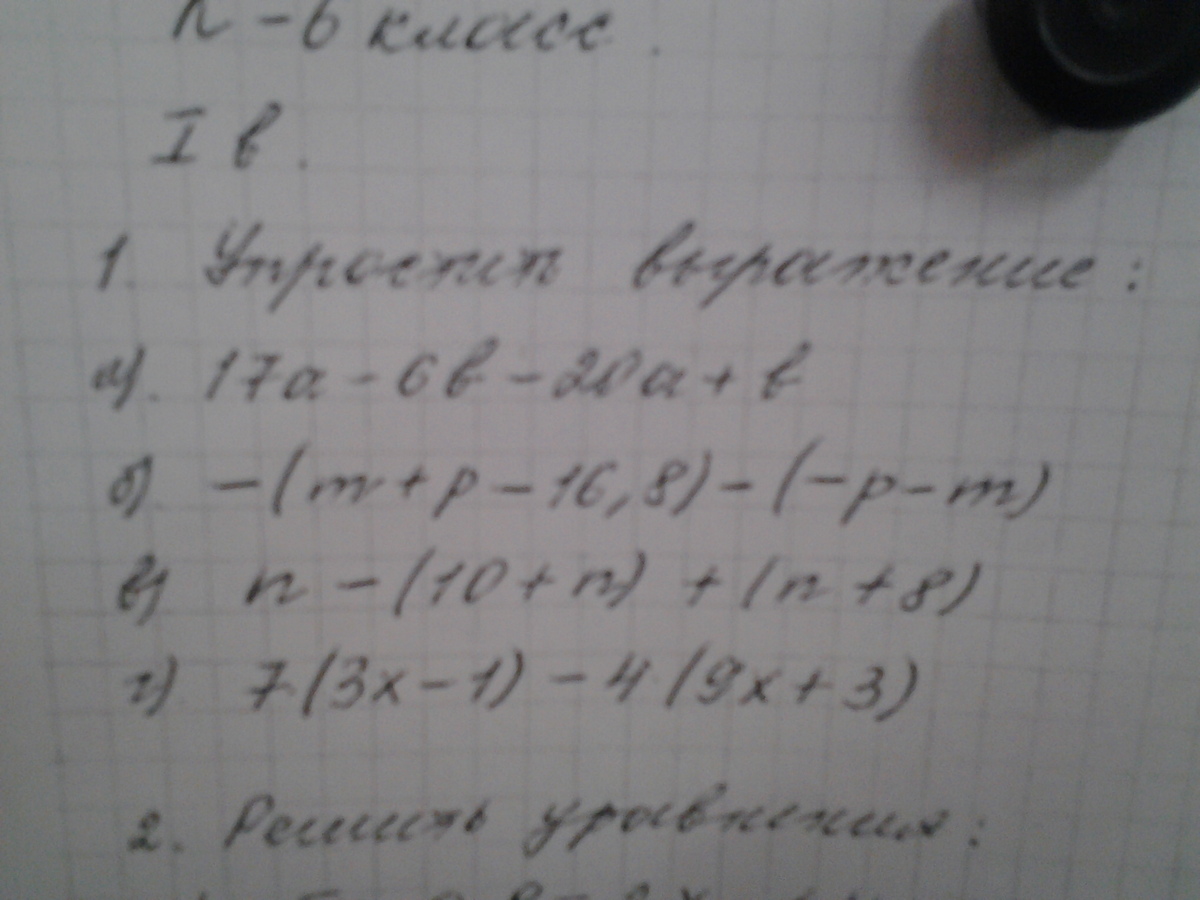 6 класс.
I в.
1. Упростить выражение:
а). 17a - 6b - 20a + b
б). -(m + p - 16,8) - (-p - m)
в) n - (10 + n) + (n + 8)
г) 7(3x - 1) - 4(9x + 3)
2. Решить уравнения: